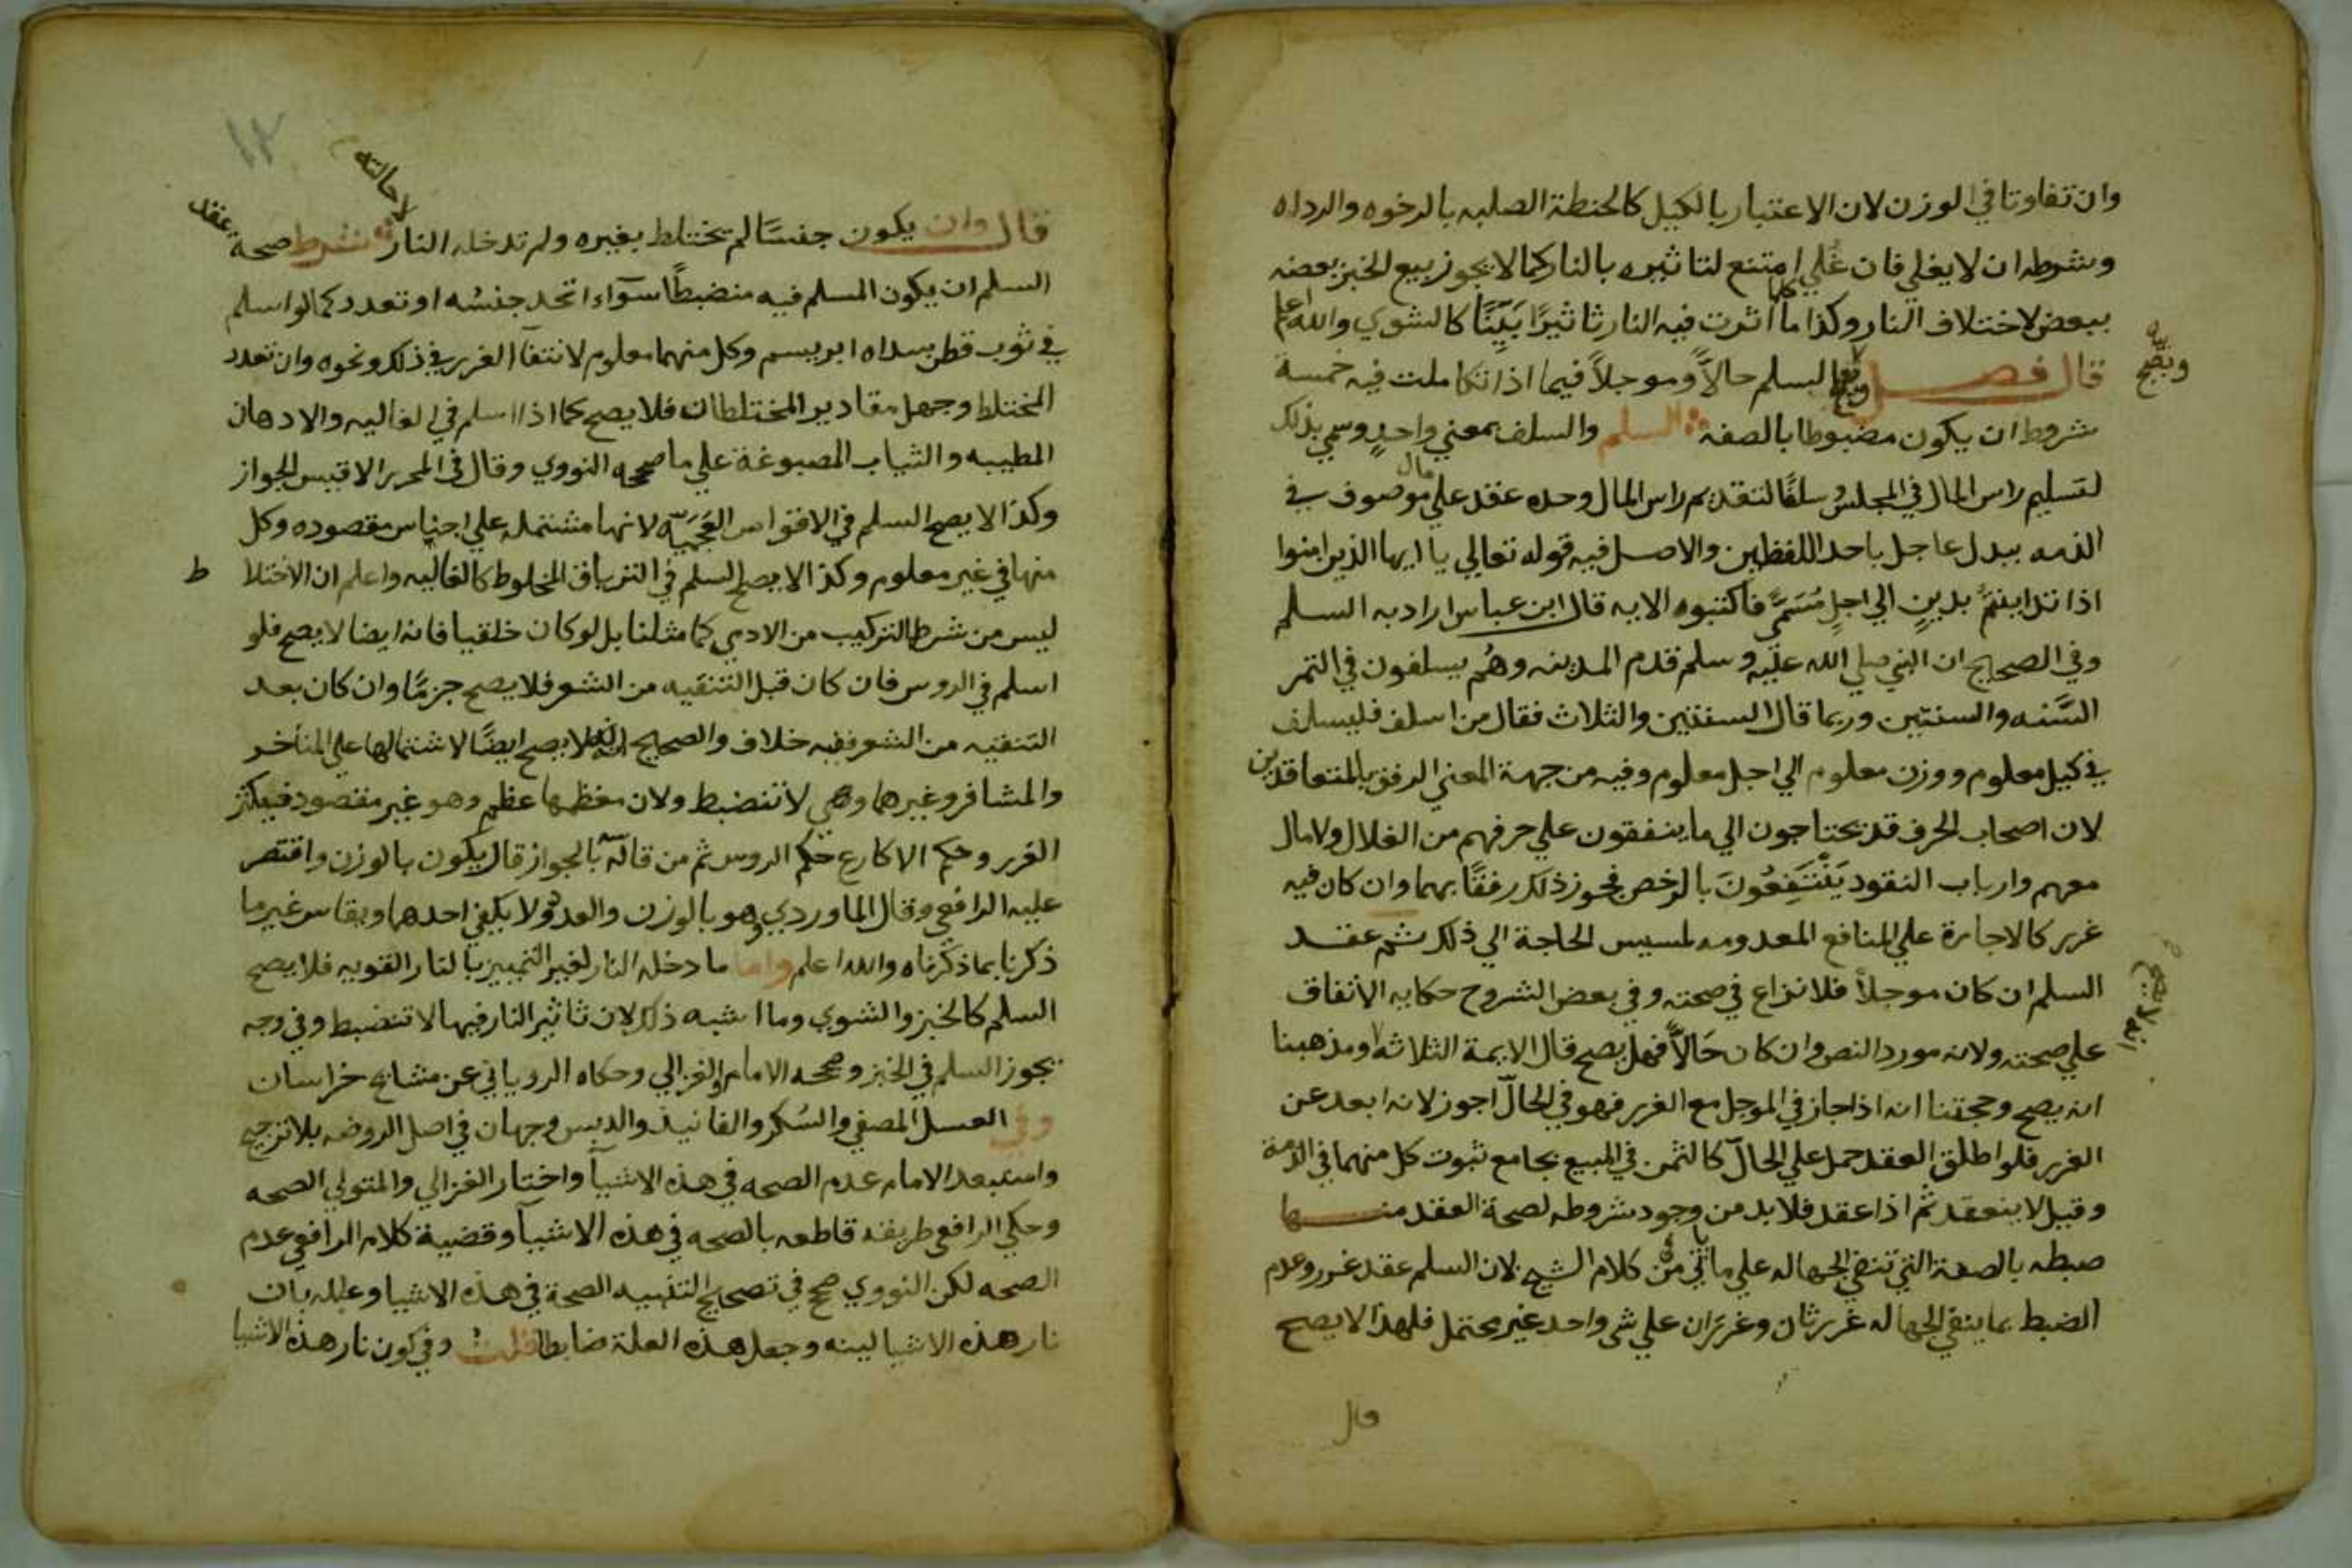 وان تفاوتا في الوزن لان الاعتبار بالكيل كالحنطة الصلبه بالرخوه والرداه
وشرطه ان لا يغلي فان غُلي امتنع لتاثيره بالنار كما لا يجوز بيع الخبز بعضه
ببعض لاختلاف النار وكذا كلما اثرت فيه النار تاثيرًا بَيِّنًا كالشوي والله اعلم
قال فصل ويصح السلم حالاًّ وموجلاً فيما اذا تكاملت فيه خمسة
ويصح
شروط ان يكون مضبوطا بالصفه السلم والسلف بمعني واحدٍ وسمي بذلك
لتسليم راس المال في المجلس وسلفًا لتقديم راس المال وحده عقد علي مال موصوف في
الذمه ببدل عاجل باحد اللفظين والاصل فيه قوله تعالي يا ايها الذين امنوا
اذا تداينتم بدينٍ الي اجلٍ مُسَمًّي فاكتبوه الايه قال ابن عباس اراد به السلم
وفي الصحيح ان النبي صلي الله عليه وسلم قدم المدينه وهُم يسلفون في التمر
السَّنه والسنتين وربما قال السنتين والثلاث فقال من اسلف فليسلف
في كيل معلوم ووزن معلوم الي اجل معلوم وفيه من جهة المعني الرفق بالمتعاقدين
لان اصحاب الحرف قد يحتاجون الي ما ينفقون علي حرفهم من الغلال ولا مال
معهم وارباب النقود يَنْتَفِعُونَ بالرخص فجوز ذلك رفقًا بهما وان كان فيه
غرر كالاجارة علي المنافع المعدومه لمسيس الحاجة الي ذلك ثم عقد
السلم ان كان موجلاً فلا نزاع في صحته وفي بعض الشروح حكايه الاتفاق
علي صحته ولانه مورد النص وان كان حَالاًّ فهل يصح قال الايمة الثلاثه لا ومذهبنا
انه لا يصح
انه يصح وحجتنا انه اذا جاز في الموجل مع الغرر فهو في الحالّ اجوز لانه ابعد عن
الغرر فلو اطلق العقد حمل علي الحالّ كالثمن في المبيع بجامع ثبوت كل منهما في الذمة
وقيل لا ينعقد ثم اذا عقد فلا بد من وجود شروطه لصحة العقد منها
ضبطه بالصفة التي تنفي الجهاله علي ما ياتي من كلام الشيخ لان السلم عقد غرر وعدم
الضبط بما ينفي الجهاله غرر ثان وغرَران علي شى واحد غير محتمل فلهذا لا يصح
قال
١٢
قال وان يكون جنسًا لم يختلط بغيره ولم تدخله النار لاحالته شرط صحة عقد
السلم ان يكون المسلم فيه منضبطًا سوآء اتحد جنسُه او تعدد كما لو اسلم
في ثوب قطن سداه ابريسم وكل منهما معلوم لانتفآ الغرر في ذلك ونحوه وان تعدد
المختلط وجهل مقادير المختلطات فلا يصح كما اذا اسلم في الغاليه والادهان
المطيبه والثياب المصبوغة علي ما صححه النووي وقال في المحرر الاقيس الجواز
وكذا لا يصح السلم في الاقواس العَجَميّه لانها مشتمله علي اجناس مقصوده وكل
منها في غير معلوم وكذا لا يصح السلم في الترياق المخلوط كالغاليه واعلم ان الاختلاط
ليس من شرط التركيب من الادمي كما مثلنا بل لو كان خلقيا فانه ايضا لا يصح فلو
اسلم في الروس فان كان قبل التنقيه من الشعر فلا يصح جزمًا وان كان بعد
التنقيه من الشعر ففيه خلاف والصحيح انه لا يصح ايضًا لاشتمالها علي المناخر
والمشافر وغيرهما وهي لا تنضبط ولان معظمها عظم وهو غير مقصود فيكثر
الغرر وحكم الاكارع حكم الروس ثم من قال بالجواز قال يكون بالوزن واقتصر
عليه الرافعي وقال الماوردي هو بالوزن والعدد ولا يكفي احدهما ويقاس غير ما
ذكرنا بما ذكرناه والله اعلم واما ما دخله النار لغير التمييز بالنار القويه فلا يصح
السلم كالخبز والشوي وما اشبه ذلك لان تاثير النار فيها لا تنضبط وفي وجه
يجوز السلم في الخبز وصححه الامام والغزالي وحكاه الروياني عن مشايخ خراسان
وفي العسل المصفي والسُكر والفانيذ والدبس وجهان في اصل الروضه بلا ترجيح
واستبعد الامام عدم الصحه في هذه الاشيآ واختار الغزالي والمتولي الصحه
وحكي الرافعي طريقه قاطعه بالصحه في هذه الاشيآ وقضية كلام الرافعي عدم
الصحه لكن النووي صحح في تصحيح التنبيه الصحة في هذه الاشيا وعلله بان
نار هذه الاشيا لينه وجعل هذه العلة ضابطا قلت وفي كون نار هذه الاشيا